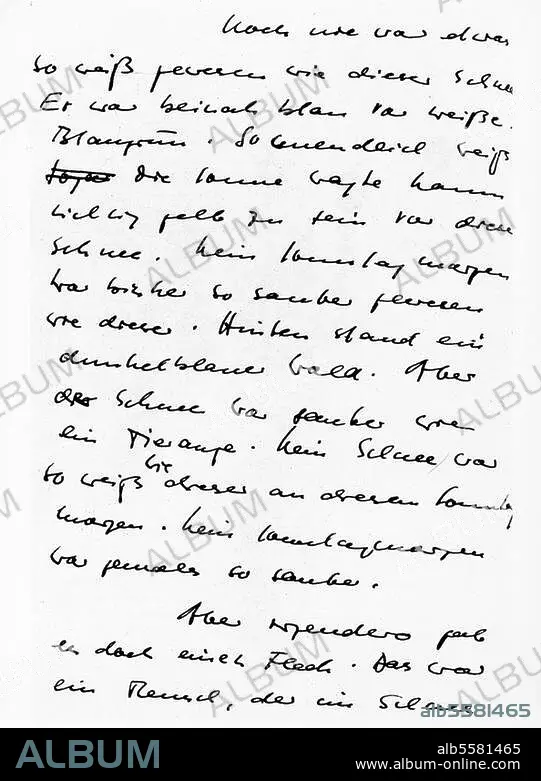 Noch nie war etwas
so weiß gewesen wie dieser Schnee
Er war beinah blau vor weiße.
Blaugrün. So unendlich weiß
Die Sonne wagte kaum
richtig gelb zu sein vor diesem
Schnee. Kein Sonntagmorgen
war bisher so sauber gewesen
wie dieser. Hinten stand ein
dunkelblauer Wald. Aber
der Schnee war sauber wie
ein Tierauge. Kein Schnee war
so weiß wie dieser an diesem Sonntag
morgen. Kein Sonntagmorgen
war jemals so sauber.
Aber irgendwo gab
es doch einen Fleck. Das war
ein Mensch, der im Schnee
ALBUM
alb5581465
ALBUM
alb5581465
www.album-online.com